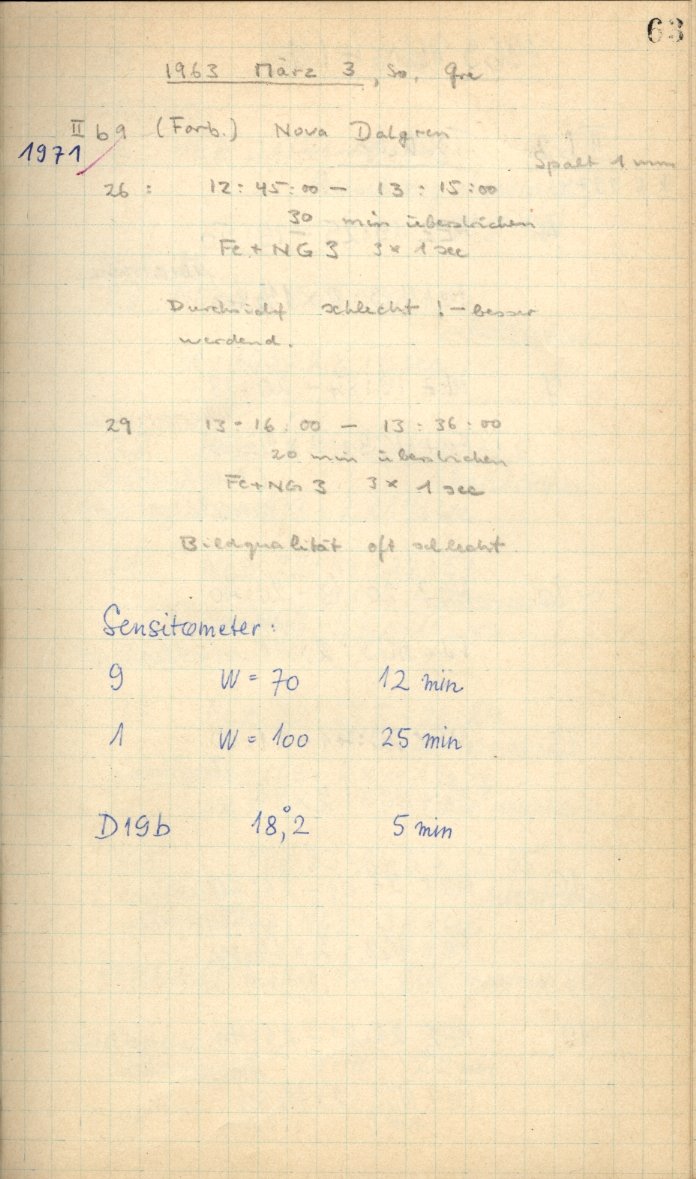 63
1963 März 3, So. Gre
II b 9 (Forb.) Nova Dalgren
1971
Spalt 1 mm
26 : 12 : 45 : 00 – 13 : 15 : 00
30 min überstrichen
Fe + NG 3 3 x 1 sec
Durchsicht schlecht ! – besser
werdend.
29 13 - 16 : 00 – 13 : 36 : 00
20 min überstrichen
Fe + NG 3 3 x 1 sec
Bildqualität oft schlecht.
Sensitometer :
9 W = 70 12 min
1 W = 100 25 min
D19b 18,°2 5 min